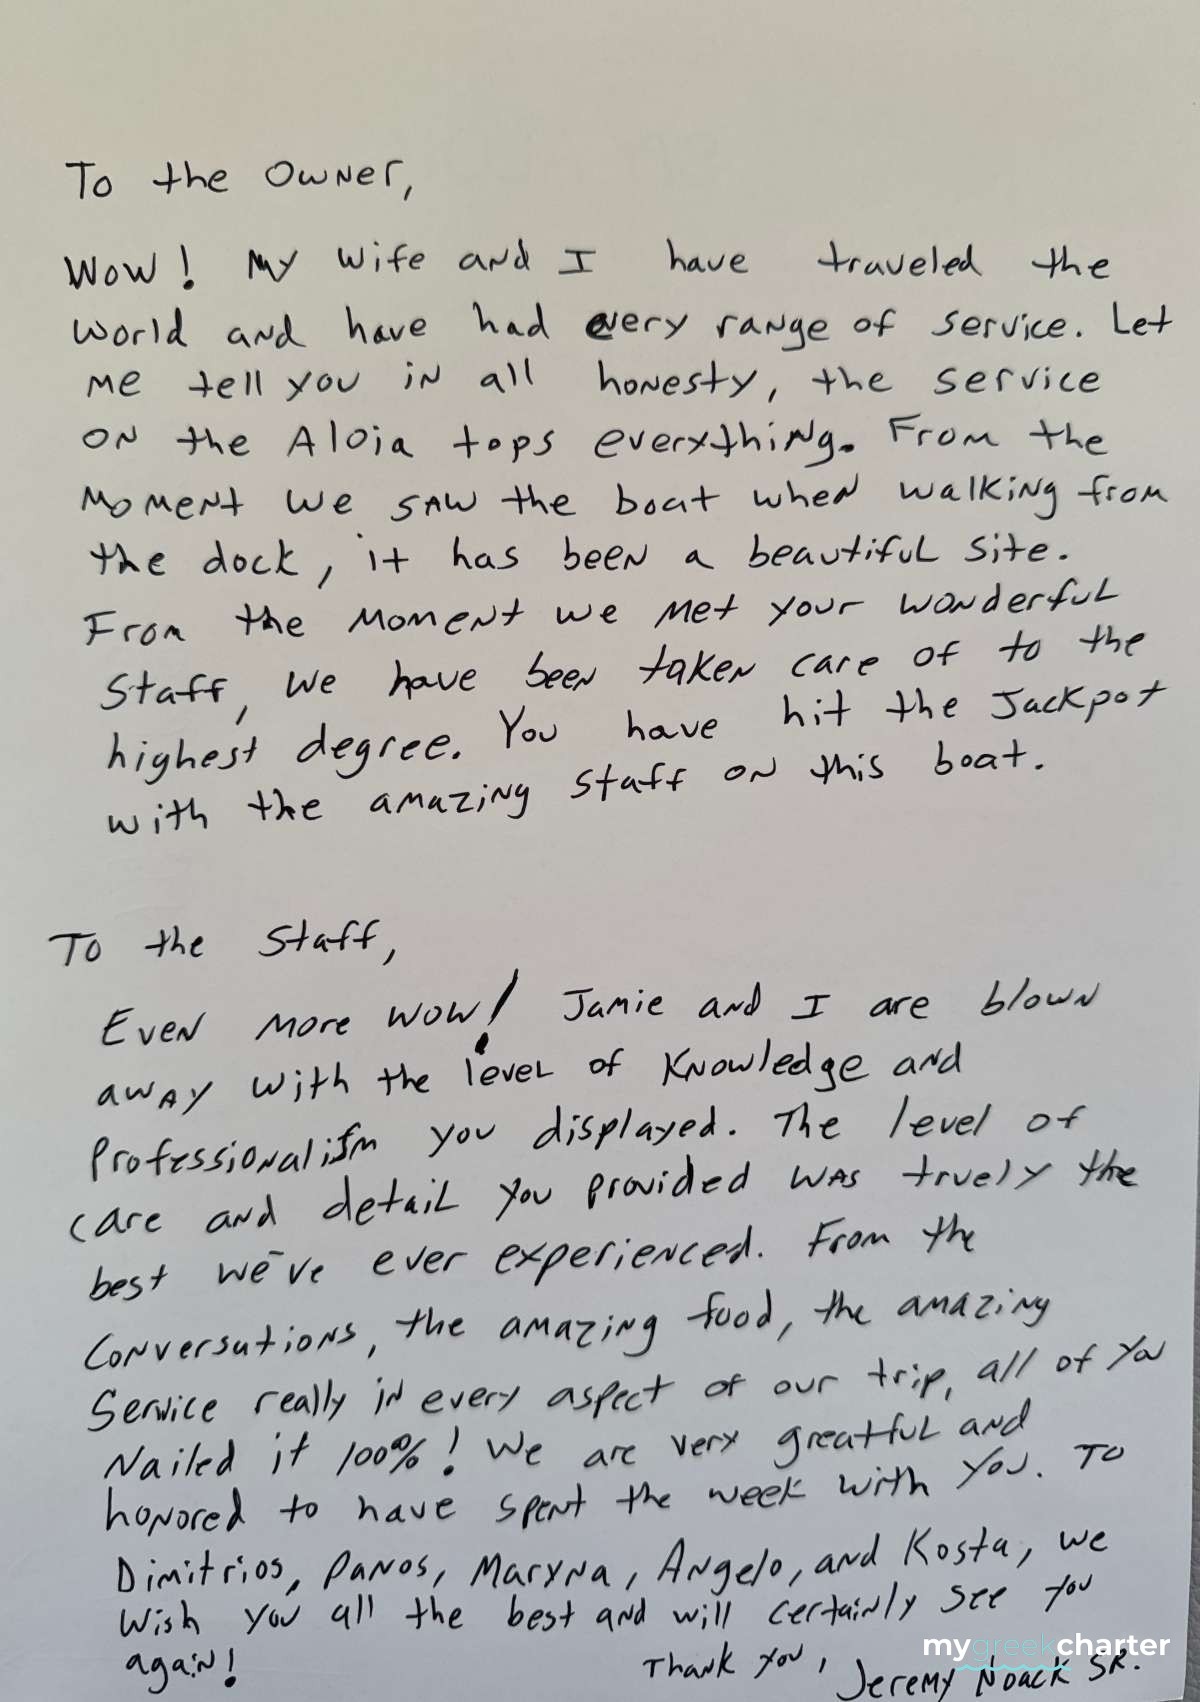 To the Owner,
Wow! My wife and I have traveled the
world and have had every range of service. Let
me tell you in all honesty, the service
on the Aloia tops everything. From the
moment we saw the boat when walking from
the dock, it has been a beautiful site.
From the moment we met your wonderful
staff, we have been taken care of to the
highest degree. You have hit the Jackpot
with the amazing staff on this boat.
To the Staff,
Even more wow! Jamie and I are blown
away with the level of knowledge and
Professionalism you displayed. The level of
care and detail you provided was truely the
best we've ever experienced. From the
conversations, the amazing food, the amazing
service really in every aspect of our trip, all of you
nailed it 100%! We are very greatful and
honored to have spent the week with you. To
Dimitrios, Panos, Maryna, Angelo, and Kosta, we
wish you all the best and will certainly see you
again!
Thank you,
Jeremy Noack SR.
mygreekcharter